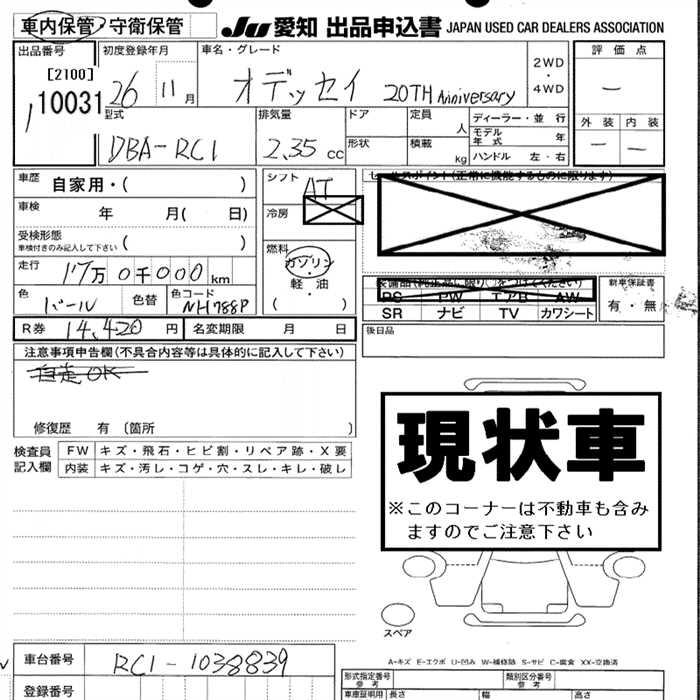 車内保管・守衛保管
JU 愛知 出品申込書 JAPAN USED CAR DEALERS ASSOCIATION
出品番号
[2100]
10031
初度登録年月
26 11月
車名・グレード
オデッセイ 20TH Anniversary
2WD
・
4WD
評価点
ー
外装 内装
ー ー
型式
DBA-RC1
排気量
2.35 cc
ドア
形状
定員 人
積載 kg
ディーラー・並行
モデル年式 年
ハンドル 左・右
車歴 自家用・( )
車検 年 月( 日)
受検形態
車検付きのみ記入して下さい ( )
走行 17万0千000km
色 パール 色替
色コード NH788P
R券 14,420円
名変期限 月 日
シフト AT
冷房
燃料
ガソリン
・
軽油
( )
セールスポイント(正常に機能するものに限ります)
PS PW エアB AW
SR ナビ TV カワシート
新車保証書
有・無
後日品
注意事項申告欄(不具合内容等は具体的に記入して下さい)
自走OK
修復歴 有 〔箇所 〕
検査員
記入欄
FW キズ・飛石・ヒビ割・リペア跡・X要
内装 キズ・汚レ・コゲ・穴・スレ・キレ・破レ
現状車
※このコーナーは不動車も含み
ますのでご注意下さい
スペア
A-キズ E-エクボ U-凹み W-補修跡 S-サビ C-腐食 XX-交換済
車台番号 RC1-1038839
登録番号
形式指定番号
参考
類別区分番号
参考
車庫証明用 長さ 幅 高さ